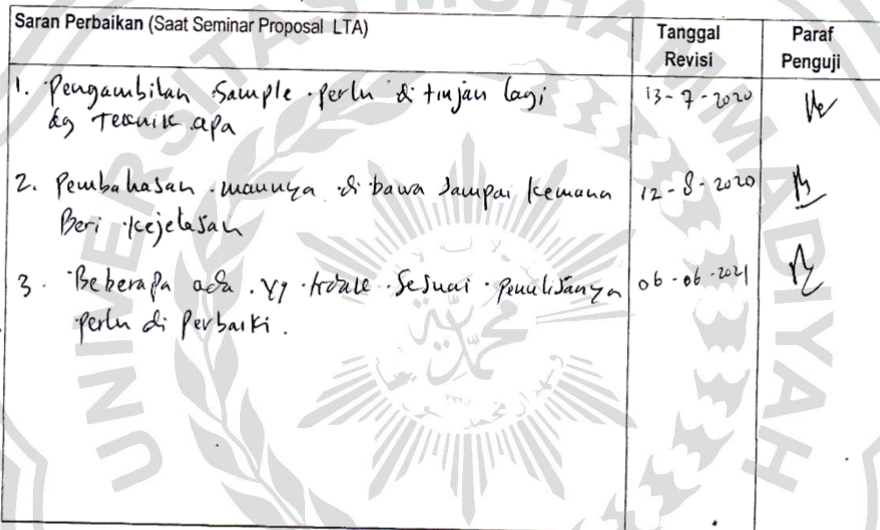 Saran Perbaikan (Saat Seminar Proposal LTA)
Tanggal Revisi
Paraf Penguji
1. Pengambilan Sample perlu di tinjau lagi
dg Teknik apa
13-7-2020
2. Pembahasan maunya di bawa sampai kemana
Beri kejelasan
12-8-2020
3. Beberapa ada yg tidak sesuai penulisanya
perlu di perbaiki.
06-06-2021
UNIVERSITAS MUHAMMADIYAH